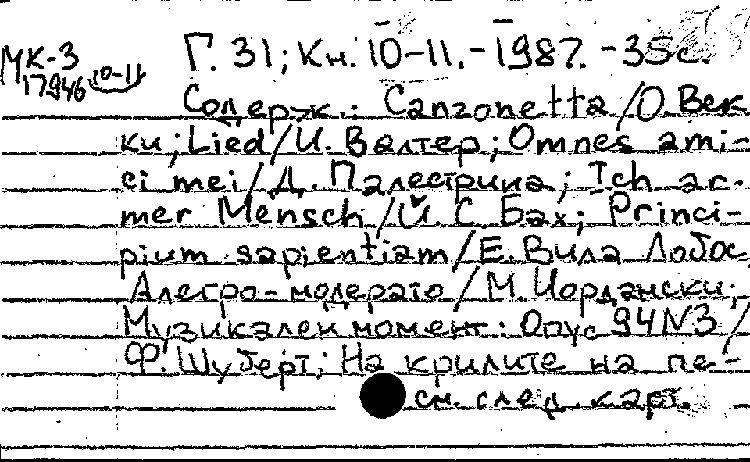 МК-3
17946 10-11
Г. 31; Кн. 10-11. - 1987. - 35с.
Содерж.: Canzonetta / О. Век
ки; Lied / И. Валтер; Omnes ami-
ci mei / Д. Палестрина; Ich ar-
mer Mensch / Й. С. Бах; Princi-
pium sapientiam / Е. Вила Лобос
Алегро-модерато / М. Йордански;
Музикален момент: Опус 94 N3 /
Ф. Шуберт; На крилите на пе-
см. след. карт.